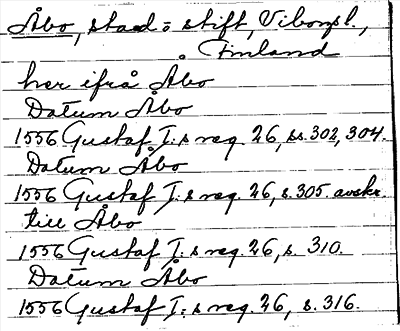 Åbo, stad o stift, Viborgsl.,
Finland
her ifrå Åbo
Datum Åbo
1556 Gustaf I:s reg. 26, ss. 302, 304.
Datum Åbo
1556 Gustaf I:s reg. 26, s. 305. avskr.
till Åbo
1556 Gustaf I:s reg. 26, s. 310.
Datum Åbo
1556 Gustaf I:s reg. 26, s. 316.